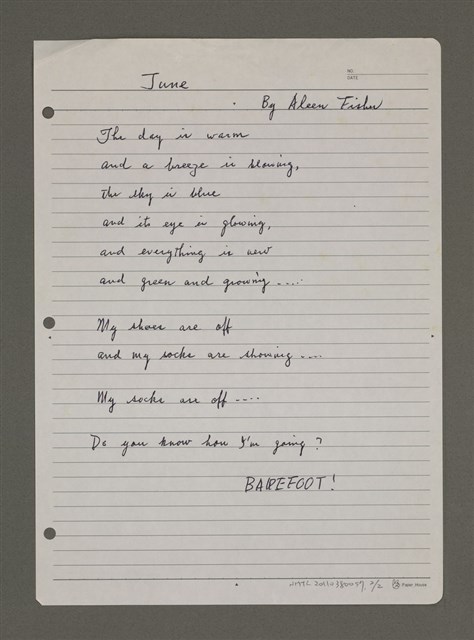 NO.
DATE
June
By Aleen Fisher
The day is warm
and a breeze is blowing,
the sky is blue
and its eye is glowing,
and everything is new
and green and growing....
My shoes are off
and my socks are showing....
My socks are off....
Do you know how I'm going?
BAREFOOT!
2/2